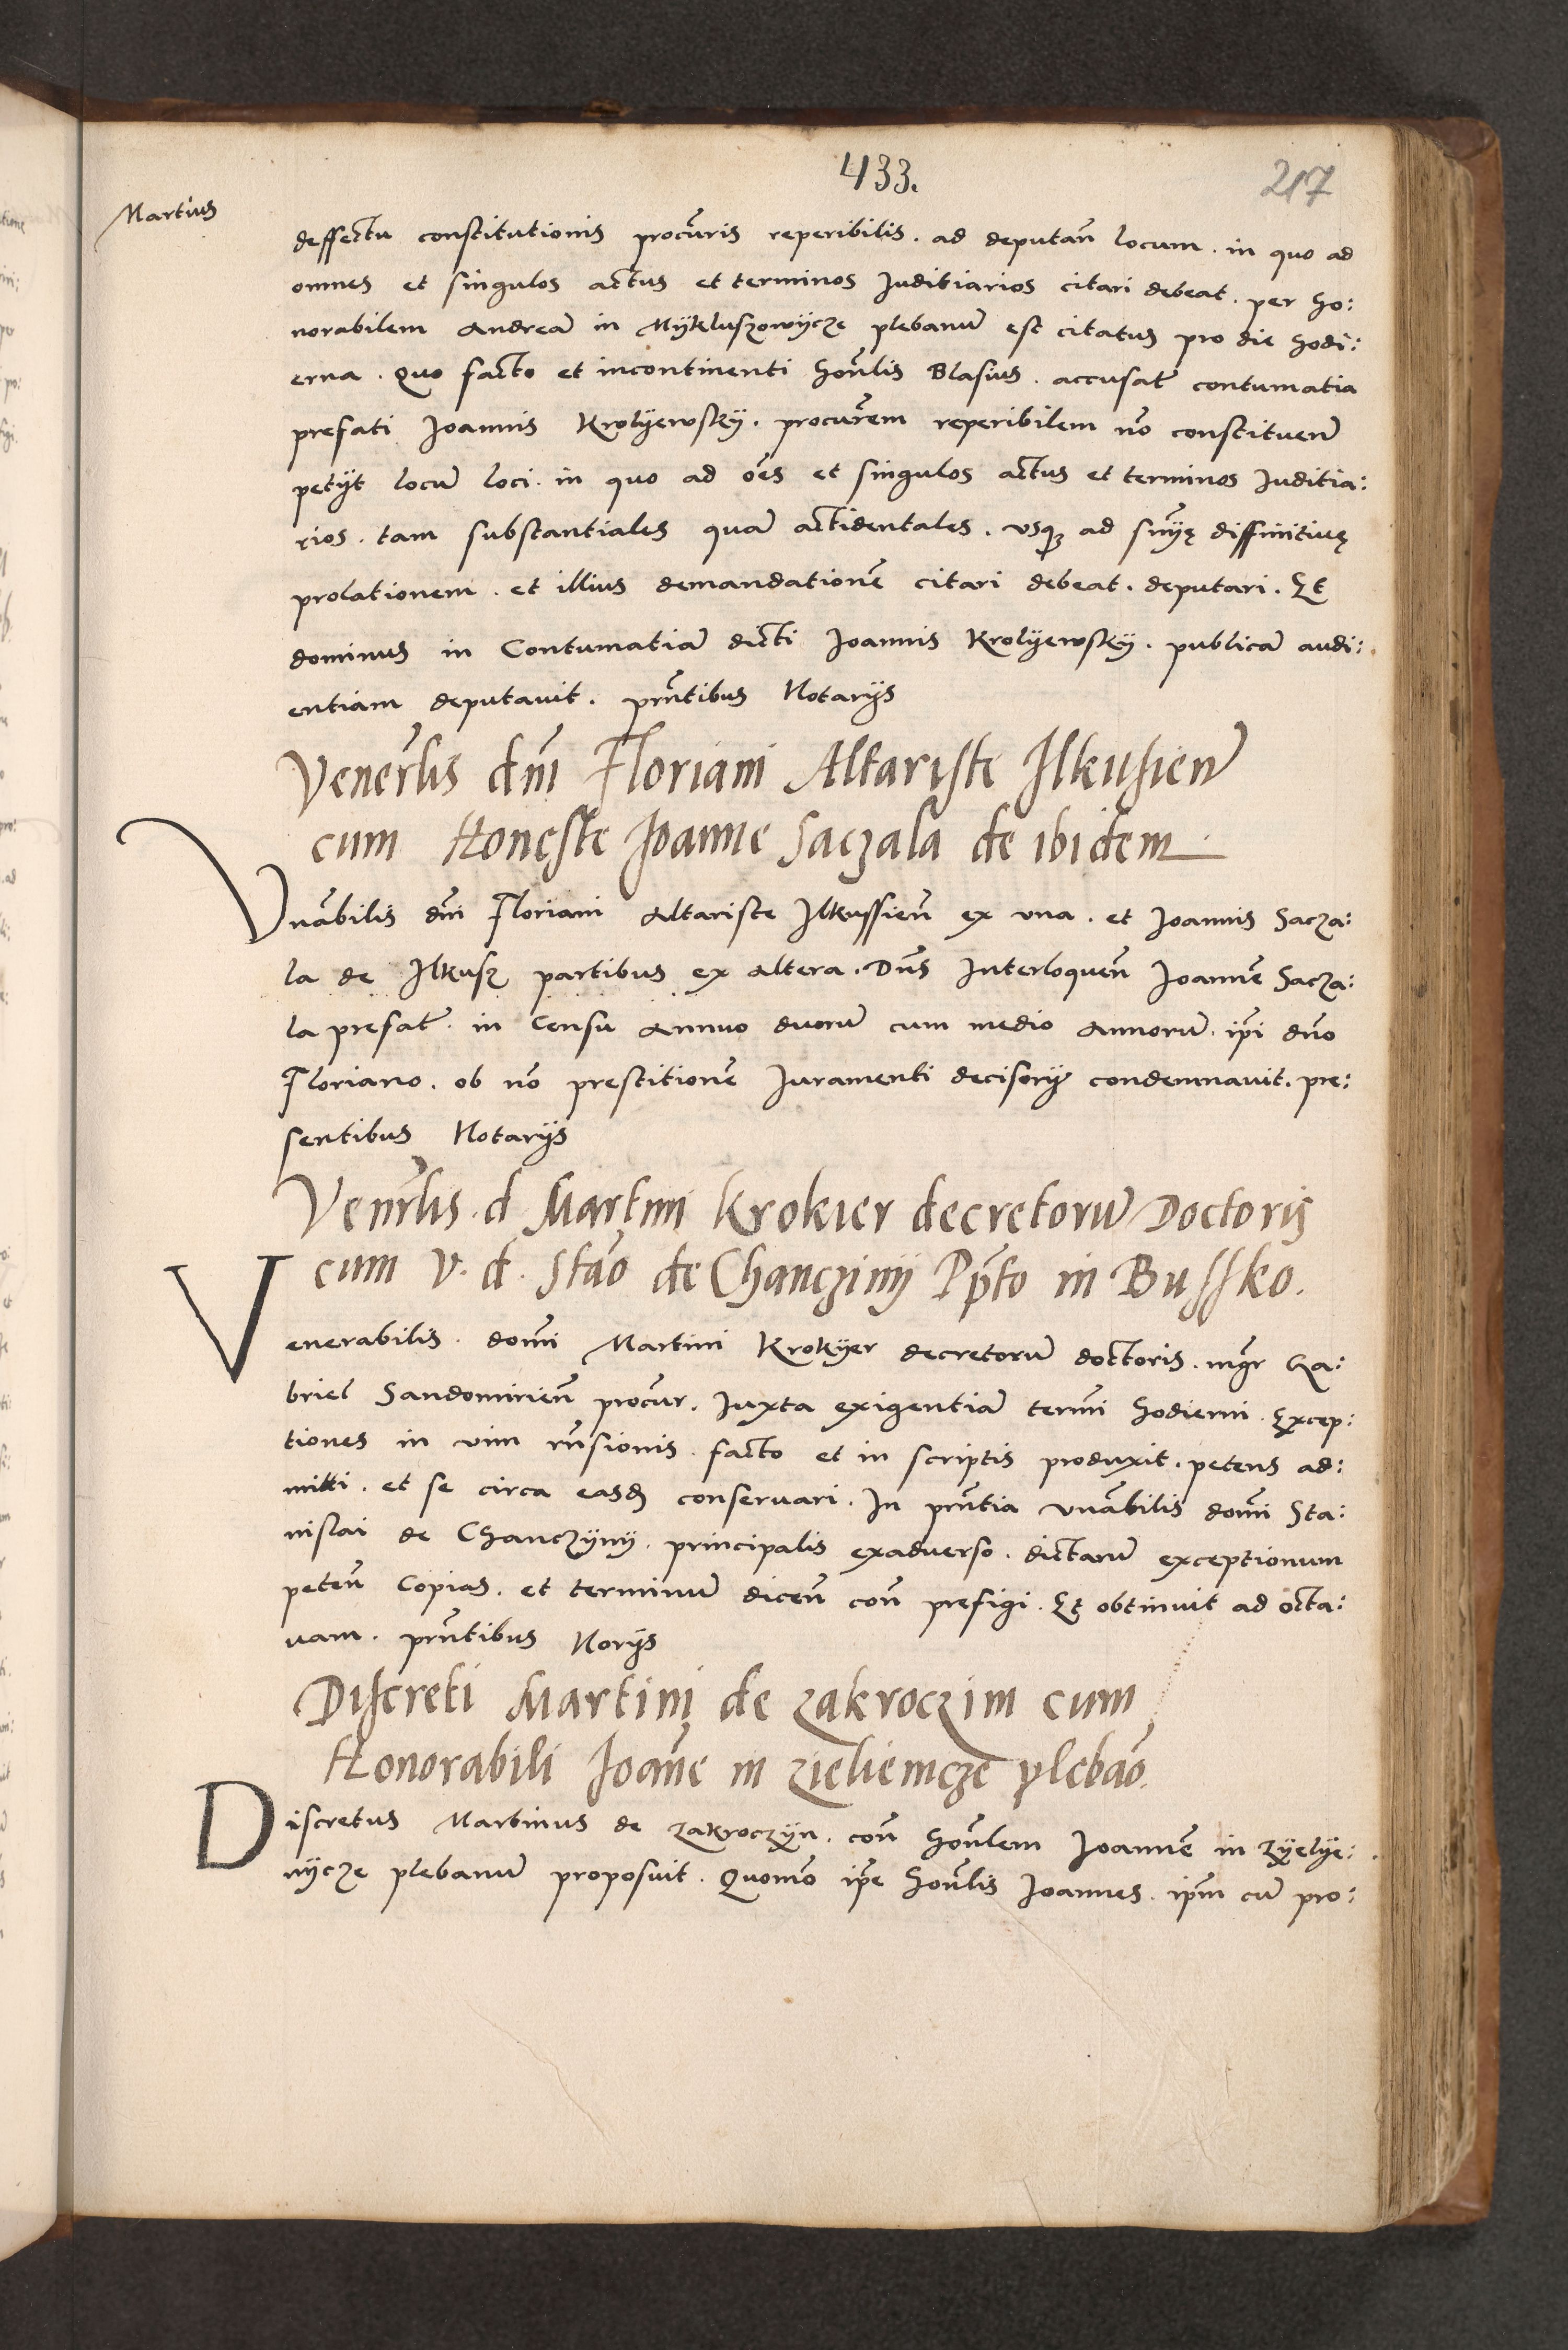 433.
217
Martius
deffectu constitutionis procuris reperibilis. ad deputan locum. in quo ad
omnes et singulos actus et terminos Juditiarios citari debeat. per ho:
norabilem Andrea in Mykluszowycze plebanu est citatus pro die hodi:
erna. Quo facto et incontinenti honlis Blasius. accusat contumatia
prefati Joannis Krolyewsky. procurem reperibilem no constituen
petyt locu loci. in quo ad oes et singulos actus et terminos Juditia:
rios. tam substantiales qua actidentales. usq ad snię diffinitiuę
prolationem. et illius demandatione citari debeat. deputari. Et
dominus in Contumatia dicti Joannis Krolyewsky. publica audi:
entiam deputauit. prntibus Notarys
Venerlis dni Floriani Altariste Ilkusien
cum Honeste Joanne Saczala de ibidem
Vnabilis dni Floriani Altariste Ilkussien ex una. et Joannis Sacza:
la de Ilkusz partibus ex altera. Dns Interloquen Joanne Sacza:
la prefat. in Censu Annuo duoru cum medio Annoru. ipi dno
Floriano. ob no prestitione Juramenti decisory condemnauit. pre:
sentibus Notarys
Venrlis. d Martini Krokier decretoru Doctoris
cum V. d. Stao de Chancziny Ppto in Bussko.
Venerabilis. domi Martini Krokyer decretoru doctoris. mgr Ga:
briel Sandomirien procur. Juxta exigentia termi hodierni. Excep:
tiones in uim rnsionis. facto et in scriptis produxit. petens ad:
mitti. et se circa easd conseruari. In prntia vnabilis domi Sta:
nislai de Chanczyny. principalis exaduerso. dictaru exceptionum
peten Copias. et terminu dicen con prefigi. Et obtinuit ad octa:
uam. prntibus Norys
Discreti Martini de zakroczim cum
Honorabili Joane in zieliemcze plebao.
Discretus Martinus de zakroczyn. con honlem Joanne in zyelye:
nycze plebanu proposuit. Quomo ipe honlis Joannes. ipm cu pro: